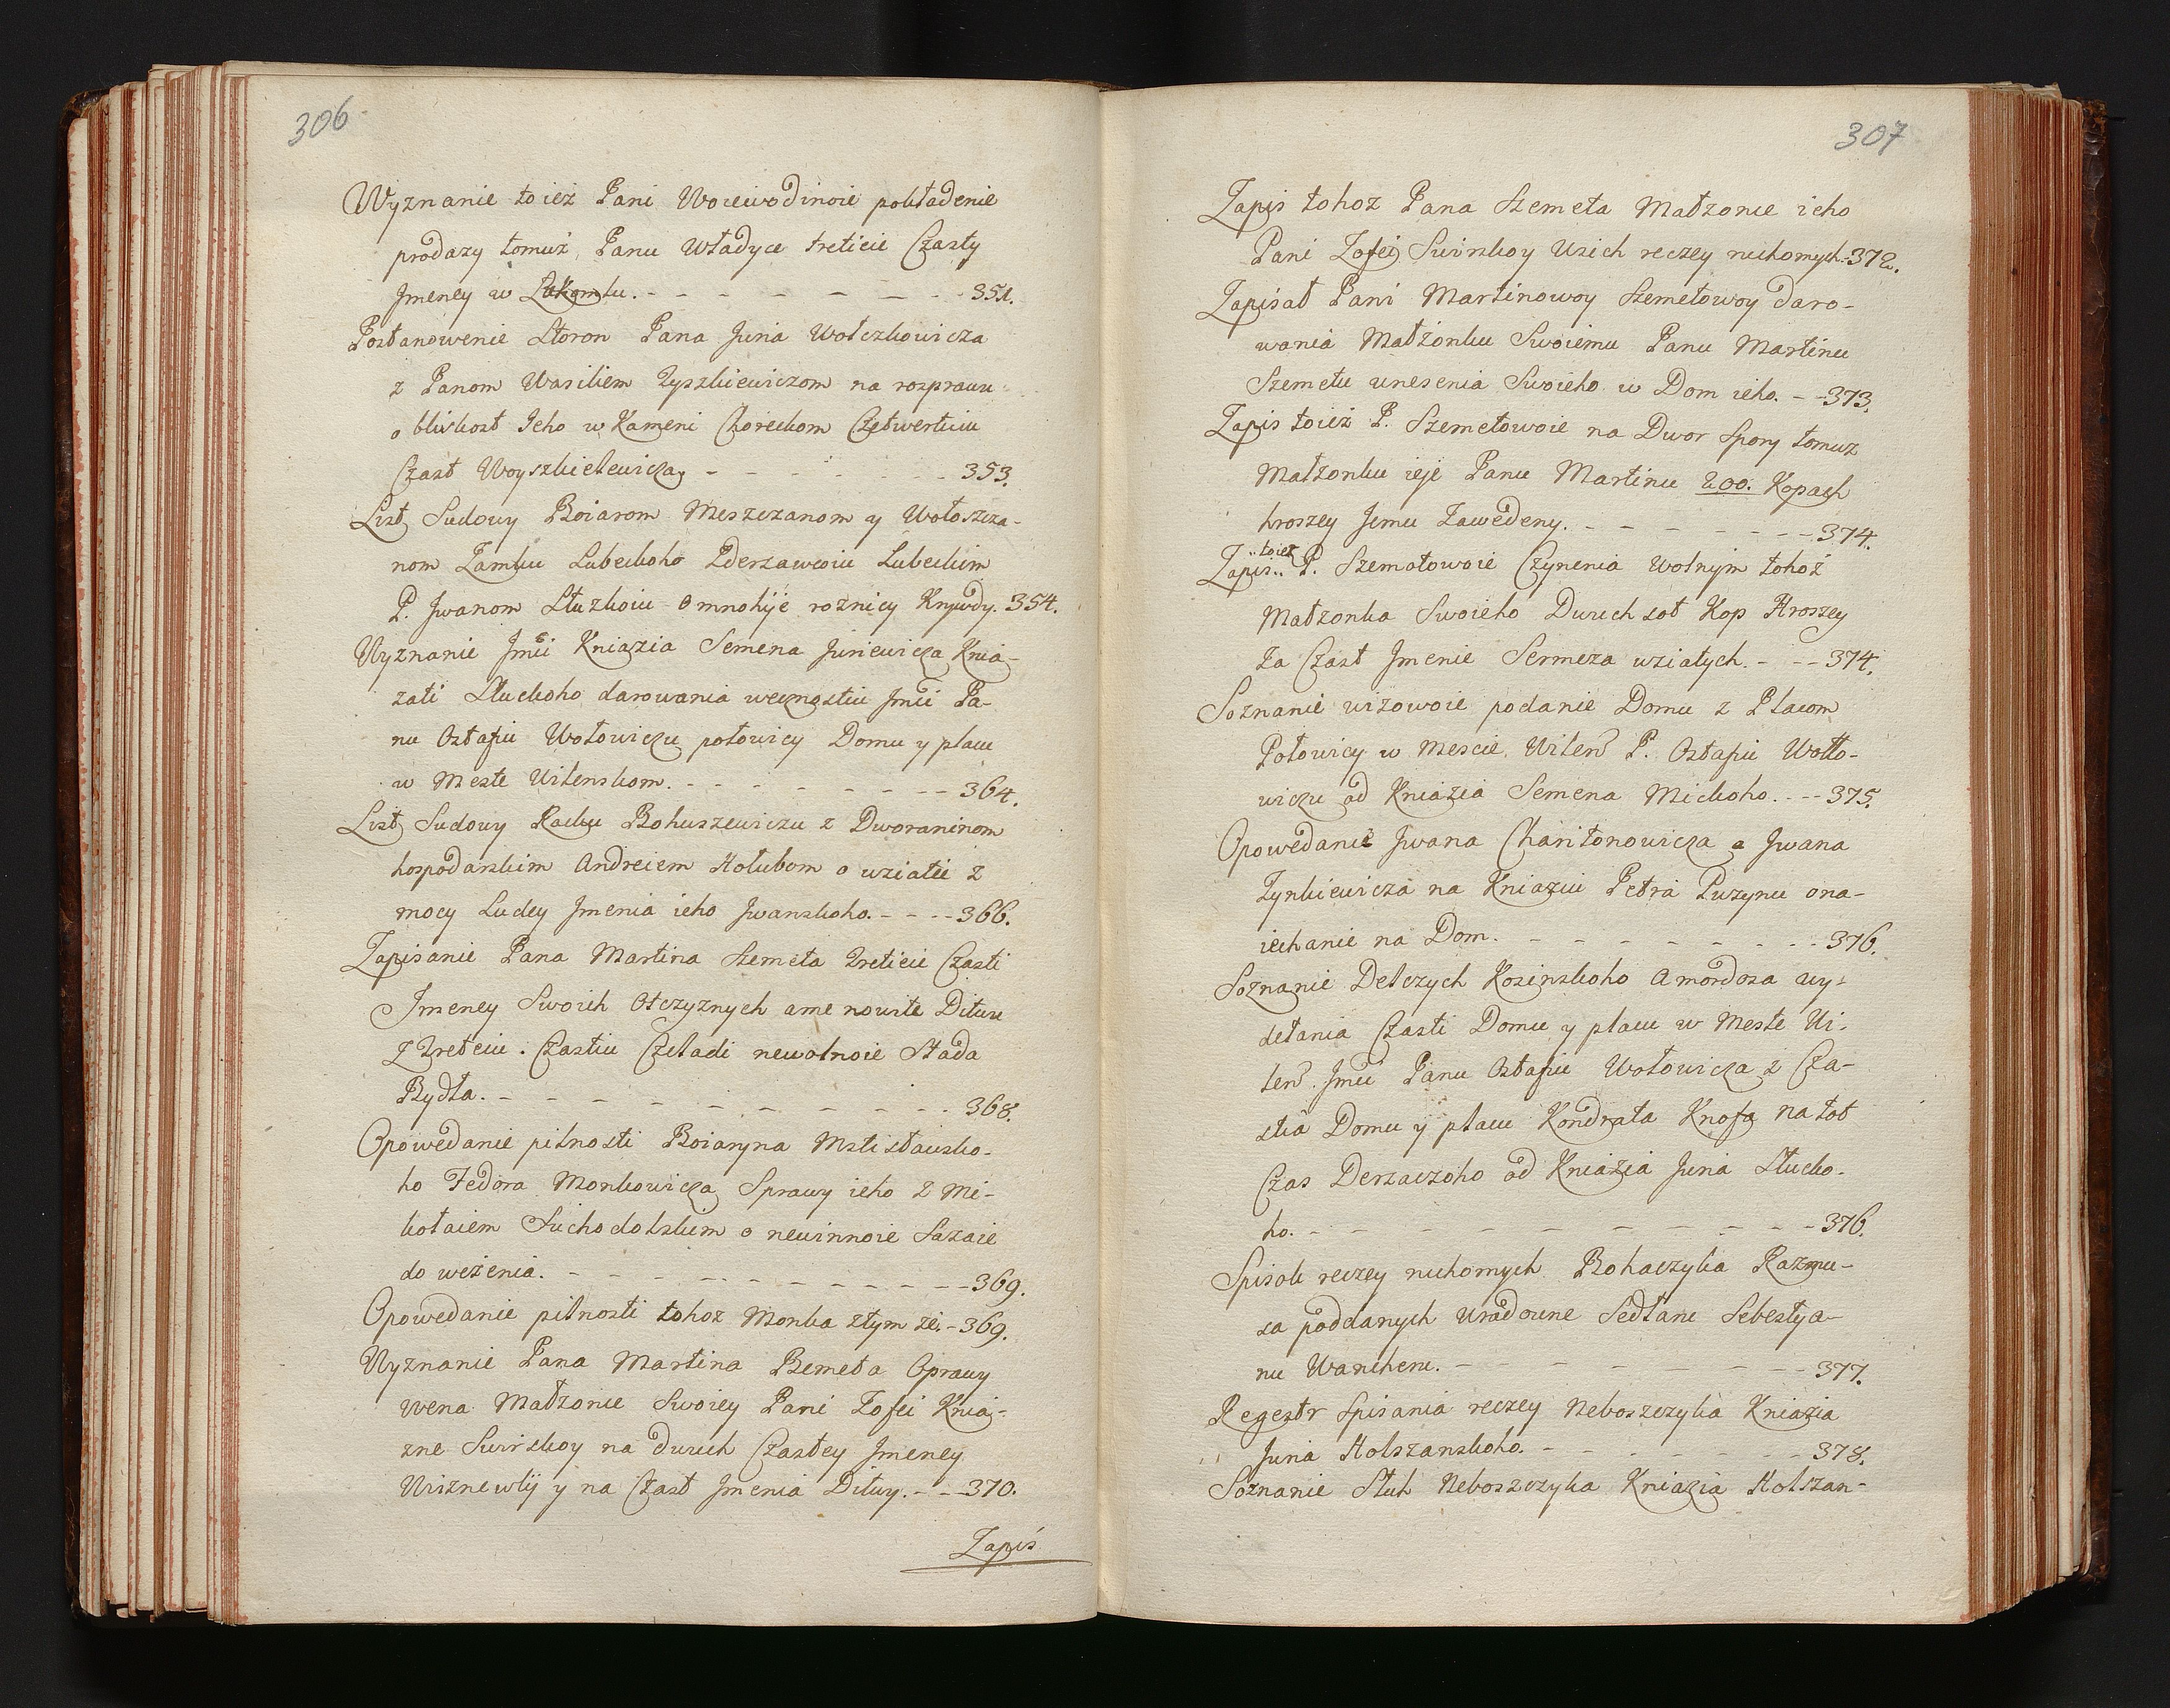 306
Wyznanie toież Pani Woiewodinoie pokładenie
prodazy tomuż Panu Władyce treticie Czasty
Jmeney w Lukomlu. - - - - - - - - 351.
Postanowenie Storon Pana Juria Wołczkowicza
z Panom Wasiliem Tyszkiewiczom na rozprawu
o blizkost Jeho w Kameni Choreckom Czetwertuiu
Czast Woyszkielewicza, - - - - - - 353.
List Sudowy Boiarom Meszczanom y Wołoszcza-
nom Zamku Lubeckoho Zderzawcoiu Lubeckim
P. Jwanom Służkoiu o mnohije roznicy Krywdy. 354.
Wyznanie Jmći Kniazia Semena Juriewicza Knia-
zati Słuckoho darowania wecznostiu Jmći Pa-
nu Ostafiu Wołowiczu połowicy Domu y placu
w Meste Wilenskom. - - - - - - - - 364.
List Sudowy Racku Bohuszewiczu z Dworaninom
hospodarskim Andreiem Hołubom o wziatii z
mocy Ludey Jmenia ieho Jwanskoho. - - - - 366.
Zapisanie Pana Martina Szemeta Treticie Czasti
Jmeney Swoich Otczyznych ame nowite Dituu
z Tretciu. Czastiu Czeladi newolnoie Stada
Bydła. - - - - - - - - - - 368.
Opowedanie pilnosti Boiaryna Mstisławsko-
ho Fedora Monkowicza Sprawy ieho z Mi-
kołaiem Suchodolskim o newinnoie Sazaie
do weżenia. - - - - - - - - - - 369.
Opowedanie pilnosti tohoz Monka ztym że. - 369.
Wyznanie Pana Martina Szemeta Oprawy
wena Małzonce Swoiey Pani Zofei Knia-
zne Swirskoy na dwuch Czastey Jmeney
Wiznewlij y na Czast Jmenia Dituy. - - - 370.
Zapis
307
Zapis tohoz Pana Szemeta Małzonce ieho
Pani Zofei Swirskoy Wsich reczey ruchomych. 372.
Zapisał Pani Martinowoy Szemetowoy daro-
wania Małżonku Swoiemu Panu Martinu
Szemetu unesenia Swoieho w Dom ieho. - - 373.
Zapis toież P. Szemetowoie na Dwor Spory tomuz
Małzonku ieje Panu Martinu 200. Kopach
hroszey Jemu Zawedeny. - - - - - - - - 374.
Zapis toież P. Szemotowoie Czynenia wolnym tohoż
Małzonka Swoieho Dwuch sot Kop Hroszey
Za Czast Jmenie Sermeza wziatych. - - - 374.
Soznanie wizowoie podanie Domu z Placom
Połowicy w mescie Wilen. P. Ostafiu Woło-
wiczu od Kniazia Semena Mickoho. - - - 375.
Opowedanie Jwana Charitonowicza a Jwana
Zynkiewicza na Kniaziu Petra Puzynu o na-
iechanie na Dom. - - - - - - - - - 376.
Soznanie Delczych Kosinskoho Amordosa wy-
detania Czasti Domu y placu w Meste Wi-
len. Jmći Panu Ostafiu Wołowicza z Cza-
stia Domu y placu Kondrata Knofa na tot
Czas Derzaczoho od Kniazia Juria Słucko-
ho. - - - - - - - - - - - 376.
Spisok reczey ruchomych Bohaczyka Razmu-
sa poddanych Uradowne Sedłanu Sebestya-
nu Wancheru. - - - - - - - - - 377.
Regestr Spisania reczey Neboszczyka Kniazia
Juria Holszanskoho. - - - - - - - 378.
Soznanie Słuh Neboszczyka Kniazia Holszan-